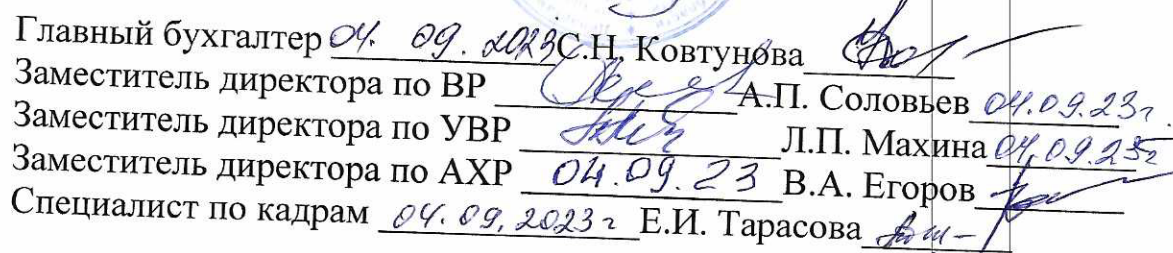 Главный бухгалтер 04. 09. 2023 С.Н. Ковтунова
Заместитель директора по ВР А.П. Соловьев 04.09.23г.
Заместитель директора по УВР Л.П. Махина 04.09.23г
Заместитель директора по АХР 04.09.23 В.А. Егоров
Специалист по кадрам 04.09.2023г Е.И. Тарасова